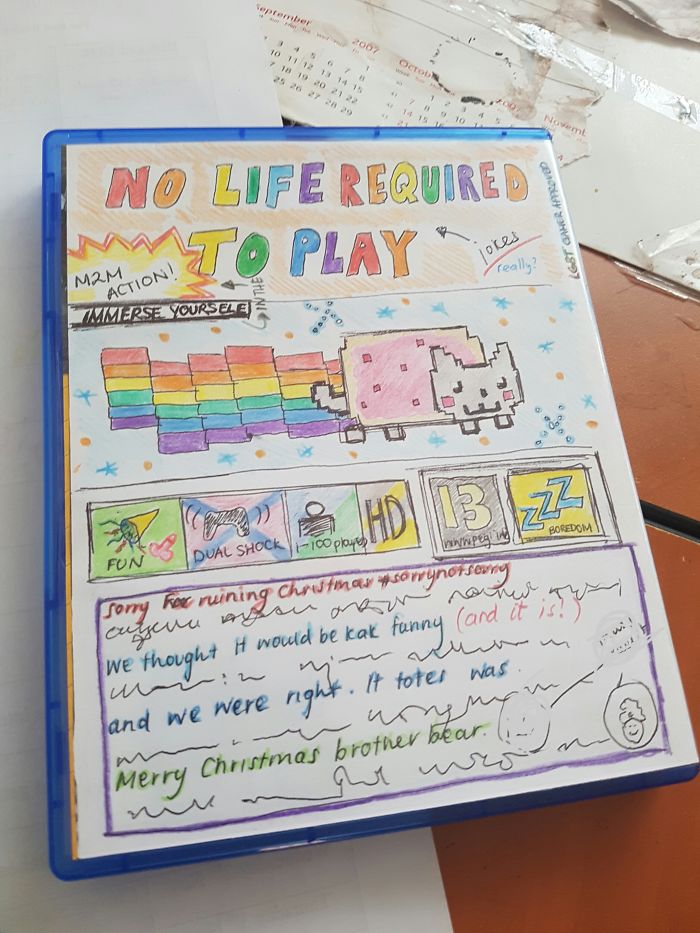 September
2007
October
Novemb
NO LIFE REQUIRED
TO PLAY
jokes
really?
LGBT GAMER APPROVED
M2M
ACTION!
IN THE
IMMERSE YOURSELF
FUN
DUAL SHOCK
1-100 players
HD
13
BOREDOM
ZZZ
Sorry For ruining Christmas #sorrynotsorry
we thought it would be kak funny (and it is!)
and we were right. It totes was.
Merry Christmas brother bear.